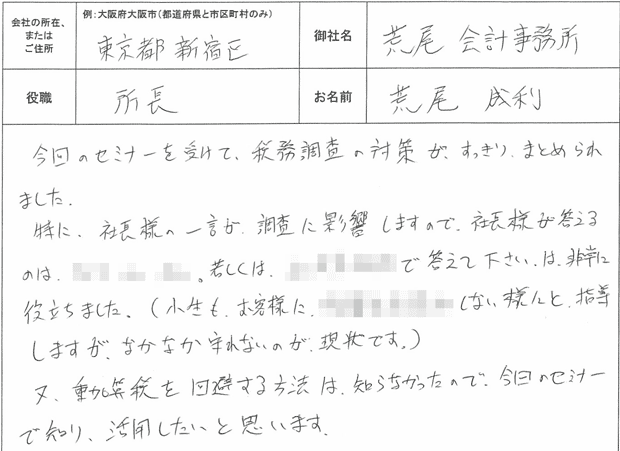 会社の所在、
または
ご住所
例：大阪府大阪市（都道府県と市区町村のみ）
東京都 新宿区
御社名
荒尾 会計事務所
役職
所長
お名前
荒尾 成利
今回のセミナーを受けて、税務調査の対策が、すっきり、まとめられ
ました。
特に、社長様の一言が、調査に影響しますので、社長様が答える
のは、 。若しくは、 で答えて下さい、は、非常に
役立ちました。（小生も、お客様に、 しない様にと、指導
しますが、なかなか守れないのが、現状です。）
又、 税を回避する方法は、知らなかったので、今回のセミナー
で知り、活用したいと思います。